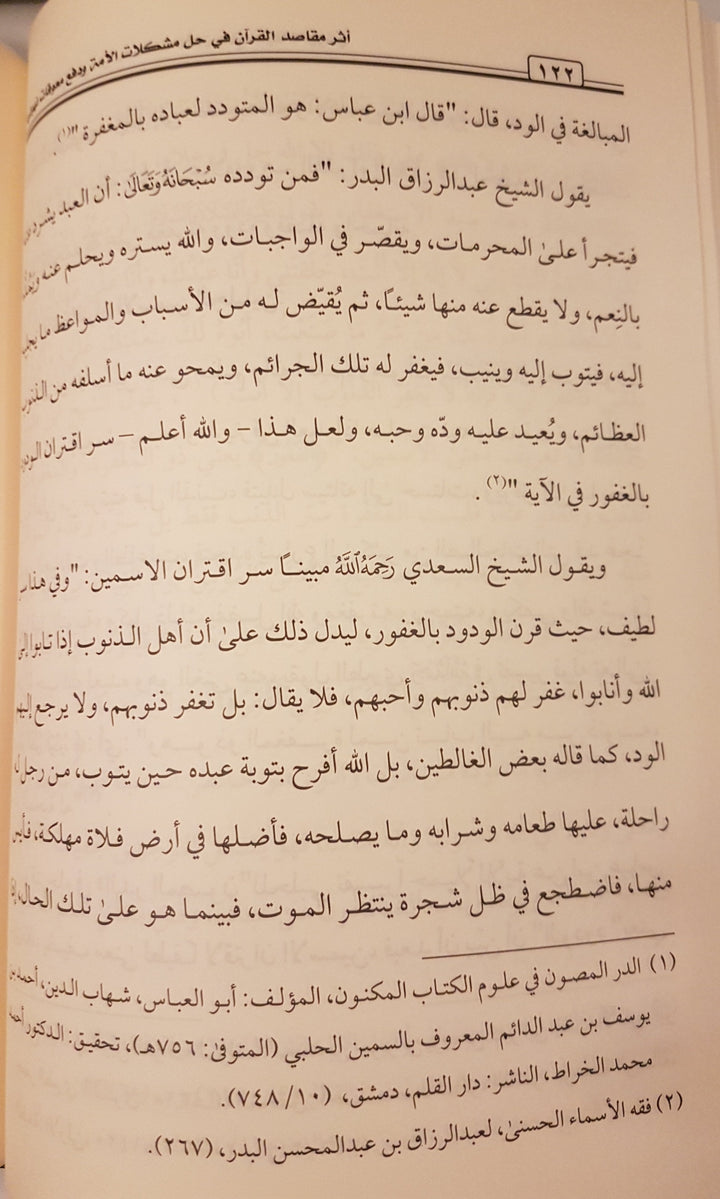 أثر مقاصد القرآن في حل مشكلات الأمة ودفع معوقات
١٢٢
المبالغة في الود، قال: "قال ابن عباس: هو المتودد لعباده بالمغفرة"(١).
يقول الشيخ عبدالرزاق البدر: "فمن تودده سُبْحَانَهُ وَتَعَالَىٰ: أن العبد يشرد
فيتجرأ علىٰ المحرمات، ويقصّر في الواجبات، والله يستره ويحلم عنه
بالنِعم، ولا يقطع عنه منها شيئًا، ثم يُقيّض له من الأسباب والمواعظ ما
إليه، فيتوب إليه وينيب، فيغفر له تلك الجرائم، ويمحو عنه ما أسلفه من الذنوب
العظائم، ويُعيد عليه ودّه وحبه، ولعل هذا – والله أعلم – سر اقتران الودود
بالغفور في الآية"(٢).
ويقول الشيخ السعدي رَحِمَهُ ٱللَّهُ مبينًا سر اقتران الاسمين: "وفي هذا
لطيف، حيث قرن الودود بالغفور، ليدل ذلك علىٰ أن أهل الذنوب إذا تابوا إلىٰ
الله وأنابوا، غفر لهم ذنوبهم وأحبهم، فلا يقال: بل تغفر ذنوبهم، ولا يرجع إليهم
الود، كما قاله بعض الغالطين، بل الله أفرح بتوبة عبده حين يتوب، من رجل
راحلة، عليها طعامه وشرابه وما يصلحه، فأضلها في أرض فلاة مهلكة، فأيس
منها، فاضطجع في ظل شجرة ينتظر الموت، فبينما هو علىٰ تلك الحال،
(١) الدر المصون في علوم الكتاب المكنون، المؤلف: أبو العباس، شهاب الدين، أحمد بن
يوسف بن عبد الدائم المعروف بالسمين الحلبي (المتوفىٰ: ٧٥٦هـ)، تحقيق: الدكتور أحمد
محمد الخراط، الناشر: دار القلم، دمشق، (١٠/٧٤٨).
(٢) فقه الأسماء الحسنىٰ، لعبدالرزاق بن عبدالمحسن البدر، (٢٦٧).